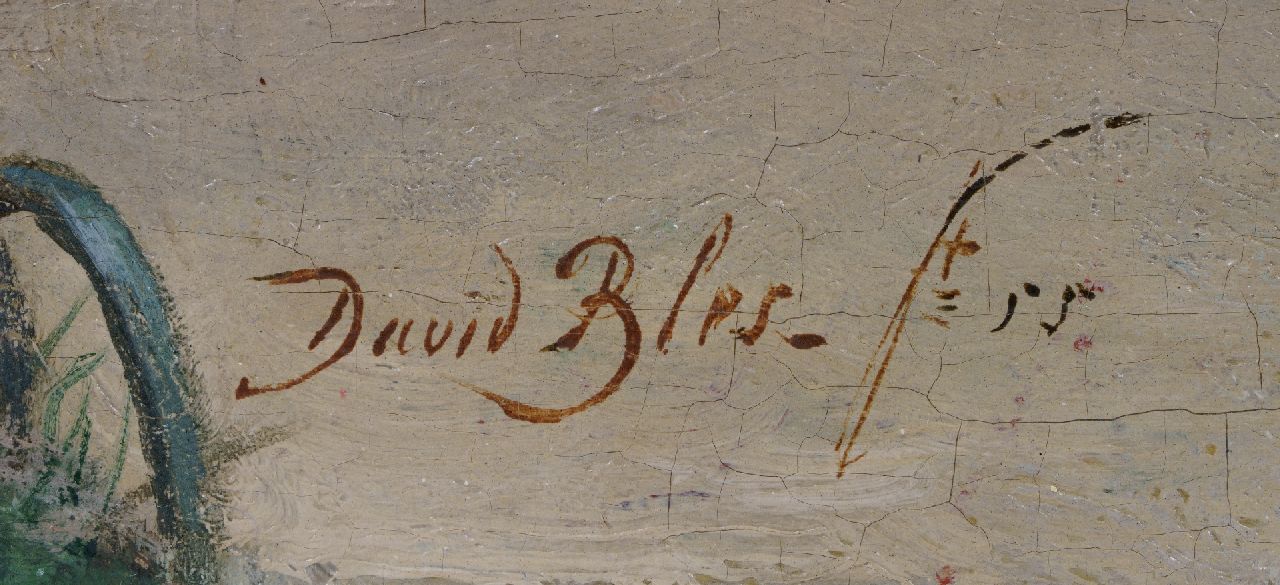 David Bles. ft = 55